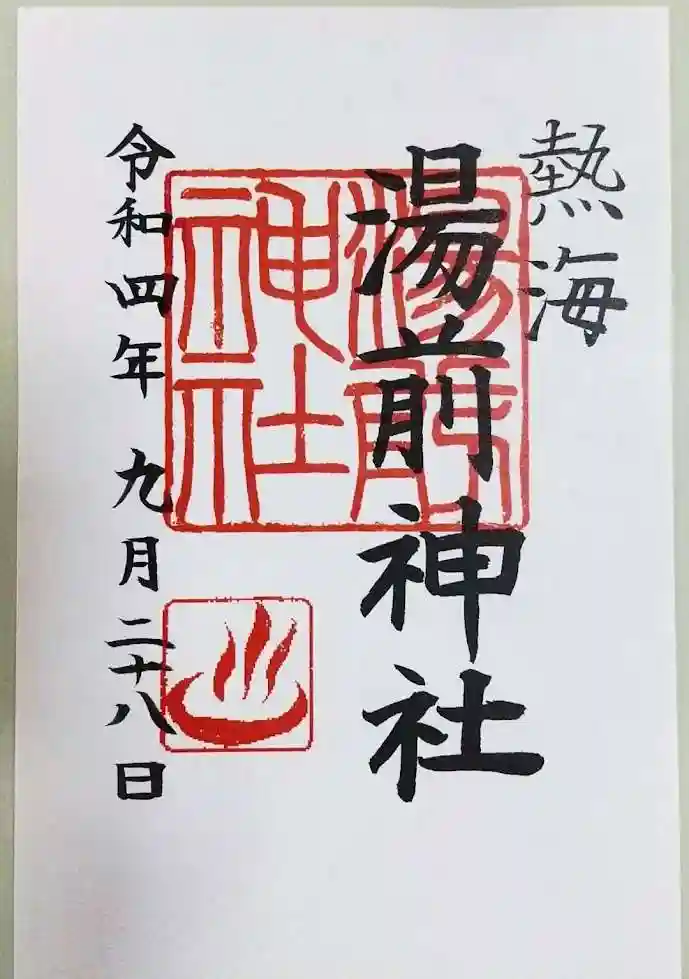 熱海
湯前神社
湯前
神社
令和四年 九月二十八日